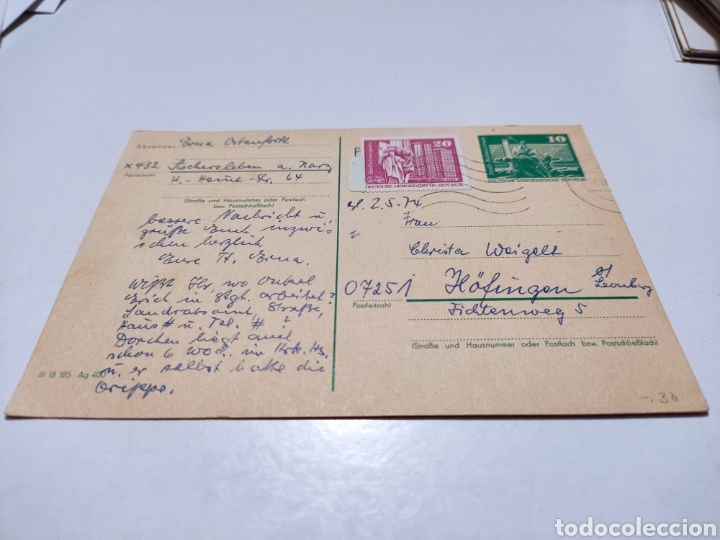 Absender: Erna Ostenforth
x 432 Aschersleben a. Harz
Postleitzahl
H.-Heine-Str. 64
(Straße und Hausnummer oder Postfach
bzw. Postschließfach)
bessere Nachricht u.
grüße Euch inzwi
schen herzlich
Eure T. Erna.
Wißt Ihr, wo Onkel
Erich in Stgt. arbeitet?
Landratsamt, Straße,
Haus # u. Tel. # ?
Dorchen liegt auch
schon 6 Woch. im
u. er selbst hatte die
Grippe.
III 18 185 Ag 400
P
20
DEUTSCHE DEMOKRATISCHE REPUBLIK
10
DEUTSCHE DEMOKRATISCHE REPUBLIK
d. 2.5.74
Frau
Christa Weigelt
07251 Höfingen
b/ Leonberg
Postleitzahl
Fichtenweg 5
(Straße und Hausnummer oder Postfach bzw. Postschließfach)
-.30
todocoleccion